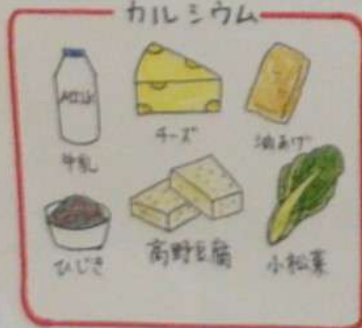 カルシウム
MILK
牛乳
チーズ
油あげ
ひじき
高野豆腐
小松菜